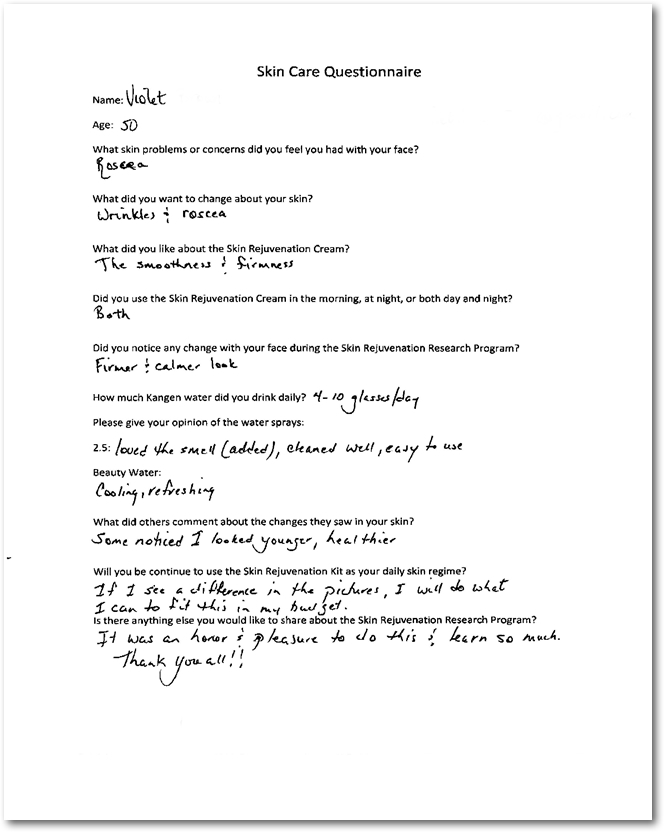 Skin Care Questionnaire
Name: Violet
Age: 50
What skin problems or concerns did you feel you had with your face?
Roscea
What did you want to change about your skin?
Wrinkles & roscea
What did you like about the Skin Rejuvenation Cream?
The smoothness & firmness
Did you use the Skin Rejuvenation Cream in the morning, at night, or both day and night?
Both
Did you notice any change with your face during the Skin Rejuvenation Research Program?
Firmer & calmer look
How much Kangen water did you drink daily? 4-10 glasses/day
Please give your opinion of the water sprays:
2.5: loved the smell (added), cleaned well, easy to use
Beauty Water:
Cooling, refreshing
What did others comment about the changes they saw in your skin?
Some noticed I looked younger, healthier
Will you be continue to use the Skin Rejuvenation Kit as your daily skin regime?
If I see a difference in the pictures, I will do what
I can to fit this in my budget.
Is there anything else you would like to share about the Skin Rejuvenation Research Program?
It was an honor & pleasure to do this & learn so much.
Thank you all!!